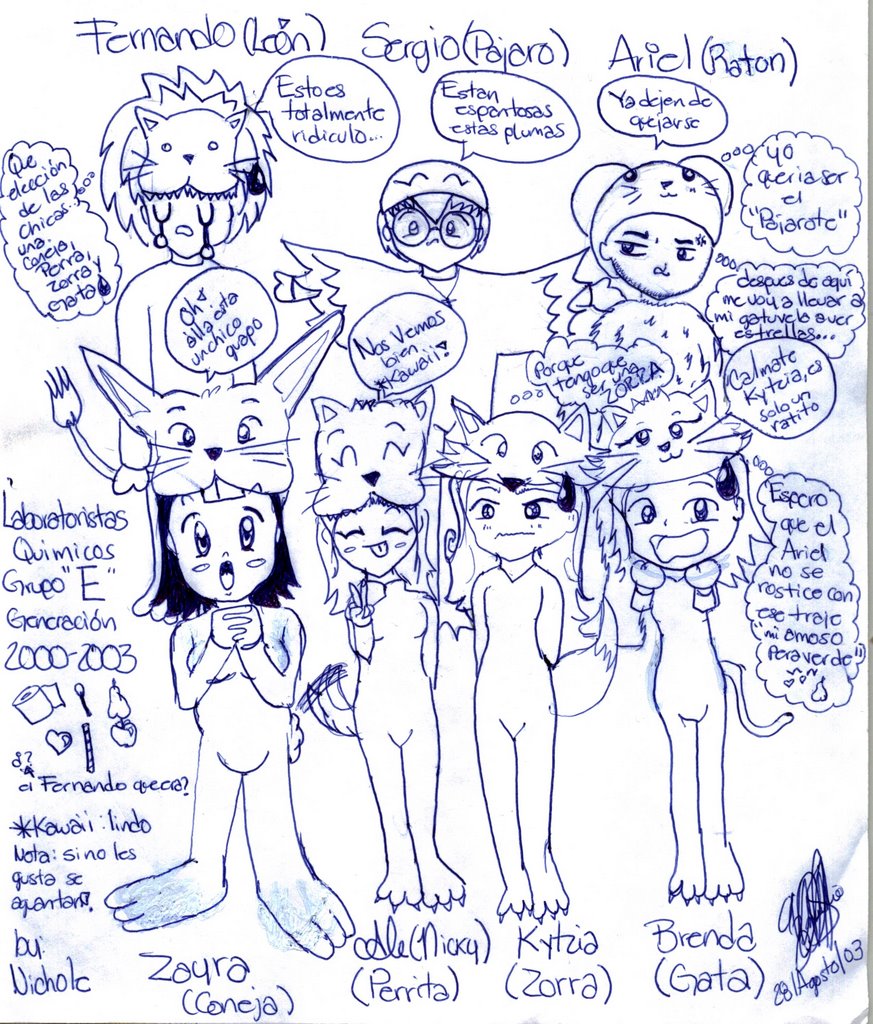 Fernando (León)
Sergio (Pájaro)
Ariel (Raton)
Esto es
totalmente
ridiculo...
Estan
espantosas
estas plumas
Ya dejen de
quejarse
Que
elección
de las
chicas:
una
Coneja,
Perra,
Zorra y
Gata
yo
queria ser
el
"Pajarote"
despues de aquí
me voy a llevar a
mi gatuvela a ver
estrellas...
Oh
alla esta
un chico
guapo
Nos vemos
bien
*Kawaii!
Porque
tengo que
ser una
ZORRA
Calmate
Kytzia, es
solo un
ratito
Espero
que el
Ariel
no se
rostice con
ese traje
"mi amoso
peraverde"
Laboratoristas
Quimicos
Grupo "E"
Generación
2000-2003
¿?
el Fernando que era?
*Kawaii: lindo
Nota: si no les
gusta se
aguantan!
by:
Nichole
Zayra
(Coneja)
(Nicky)
(Perrita)
Kytzia
(Zorra)
Brenda
(Gata)
28/Agosto/03